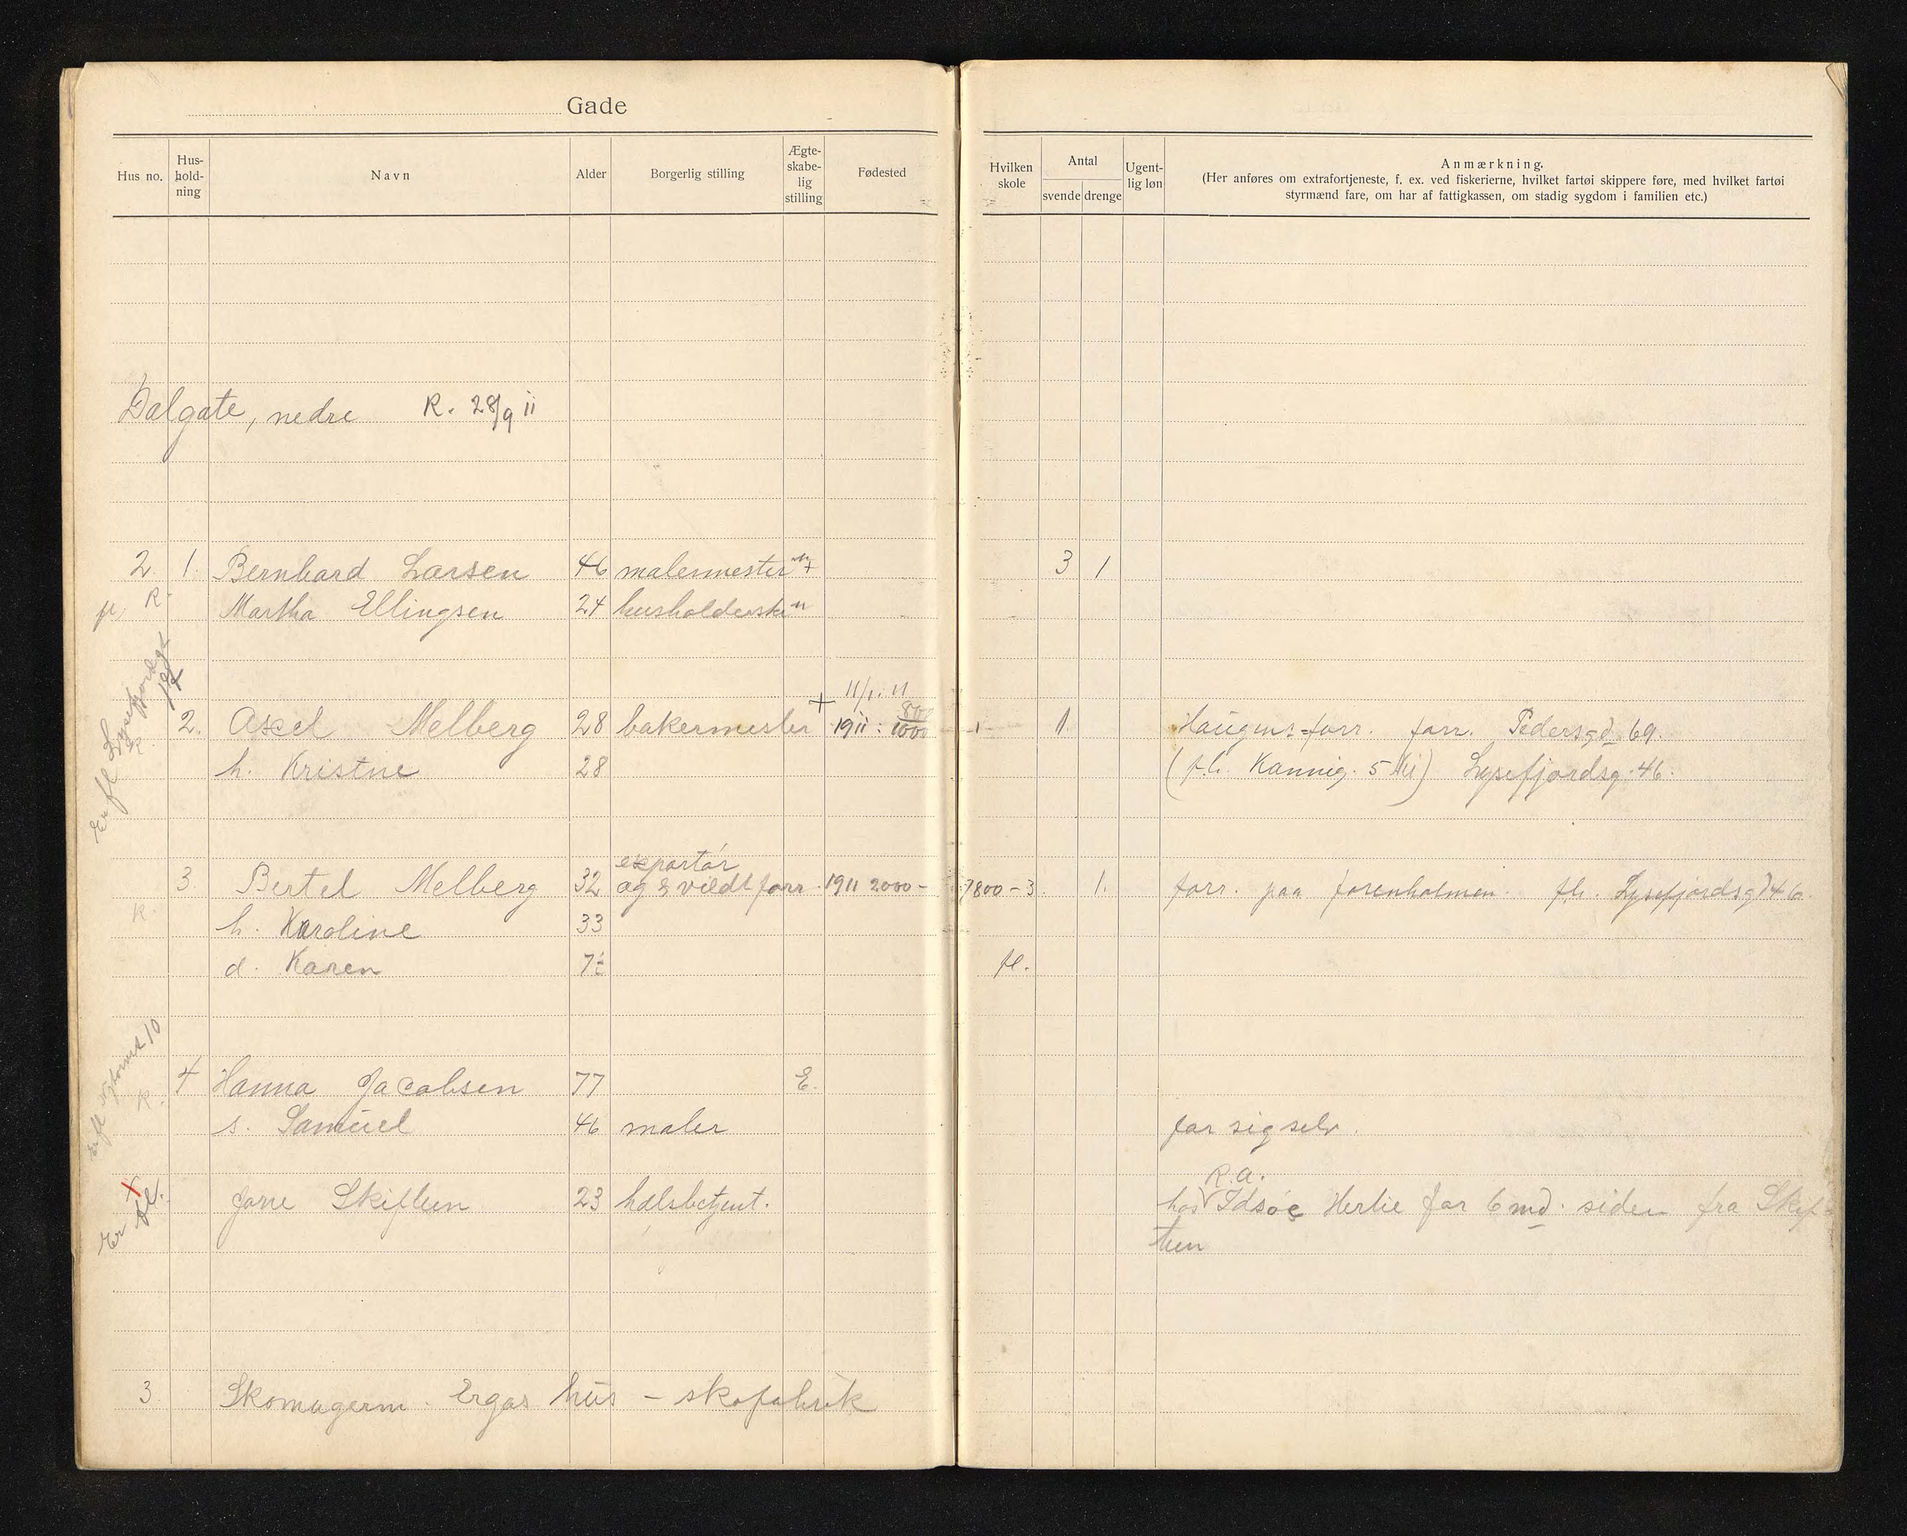 Gade
Hus no. Hus- hold- ning Navn Alder Borgerlig stilling Ægte- skabe- lig stilling Fødested
Hvilken skole Antal svende drenge Ugent- lig løn Anmærkning.
(Her anføres om extrafortjeneste, f. ex. ved fiskerierne, hvilket fartøi skippere føre, med hvilket fartøi
styrmænd fare, om har af fattigkassen, om stadig sygdom i familien etc.)
Dalgate, nedre R. 28/9 11
2 1. Bernhard Larsen 46 malermester 3 1
fl. R. Martha Ellingsen 24 husholderske
Er fl Lysefjordgt
11/1. 11
800
2. Axel Melberg 28 bakermester + 1911: 1000 - 1 - 1. Haugens forr. forr. Pedersgd 69.
R. h. Kristne 28 (fh. Kannig. 5 Mi) Lysefjordsg. 46.
exportør
3. Bertel Melberg 32 og vildtforr. 1911 2000 - 7800 - 3. 1. forr. paa Josenholmen. fh. Lysefjordsgd 46.
R. h. Karoline 33
d. Karen 7½ fl.
Er fl 10
4 Hanna Jacobsen 77 E.
R. s. Samuel 46 maler for sig selv.
R.a.
Er fl. Jone Skiftun 23 hos Idsøe Herlie for 6 md. siden fra Skif-
tun
3. Skomagerm. Ergas hus - skofabrik